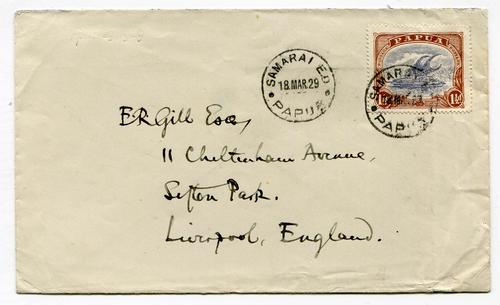 PAPUA
1½d 1½d
SAMARAI E.D
18.MAR.29
PAPUA
SAMARAI
PAPUA
E.R. Gill Esq,
11 Cheltenham Avenue,
Sefton Park.
Liverpool, England.